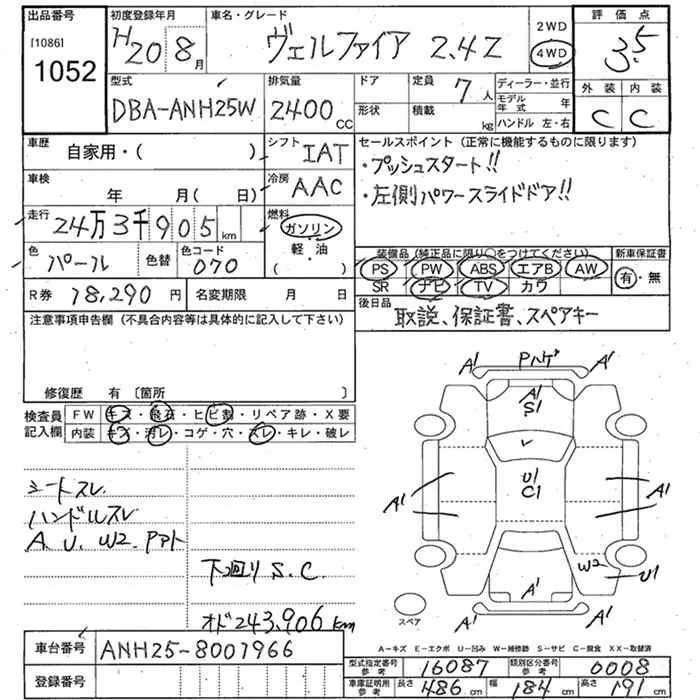 出品番号 初度登録年月 車名・グレード 2WD 評価点
[1086] 1052 H20 8月 ヴェルファイア 2.4Z 4WD 3.5
型式 排気量 ドア 定員 7人 ディーラー・並行 外装 内装
DBA-ANH25W 2400 CC 形状 積載 kg モデル年式 年 C C
ハンドル 左・右
車歴 自家用・( ) シフト IAT セールスポイント (正常に機能するものに限ります)
・プッシュスタート!!
車検 年 月( 日) 冷房 AAC ・左側パワースライドドア!!
走行 24万3千905km 燃料 ガソリン
軽・油
( )
色 パール 色替 色コード 070 装備品 (純正品に限り○をつけてください) 新車保証書
PS PW ABS エアB AW 有・無
SR ナビ TV カワ
R券 18,290円 名変期限 月 日 後日品
取説、保証書、スペアキー
注意事項申告欄 (不具合内容等は具体的に記入して下さい)
修復歴 有 〔箇所 〕
検査員記入欄 FW キズ・飛石・ヒビ割・リペア跡・X要
内装 キズ・汚レ・コゲ・穴・スレ・キレ・破レ
A1 Pハゲ A1
A1
S1
U1
C1
A1 A1
A1 A1
W2 U1
A1
A1 A1
スペア
シートスレ
ハンドルスレ
A、U、W2、Pアト
下廻りS.C.
オド243,906km
A−キズ E−エクボ U−凹み W−補修跡 S−サビ C−腐食 XX−取替済
車台番号 ANH25-8001966
登録番号
型式指定番号 参考 16087 類別区分番号 参考 0008
車庫証明用 参考 長さ 486cm 幅 184cm 高さ 191cm